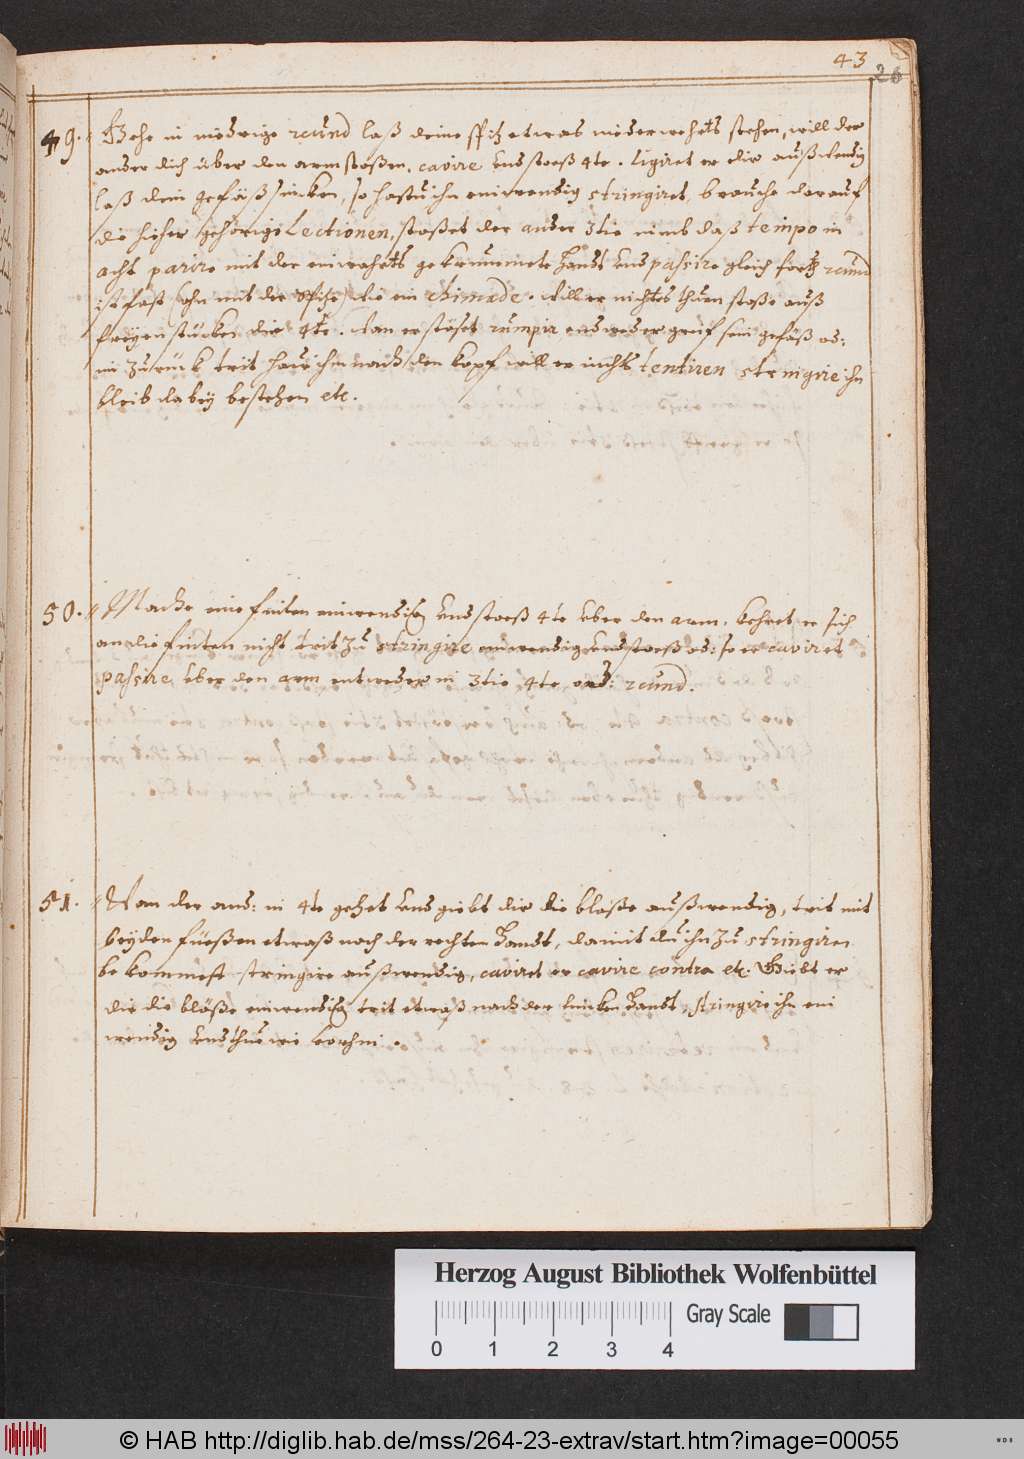 43
26
49. Gehe in niedrige rcund laß deine spitz etwas niderwehrts stehen, will der
ander dich über den arm stoßen, cavire und stoeß 4te. ligiret er dir außwendig
laß dein gefäß sincken, so hastu ihn einwendig stringiret, brauche darauf
die hieher gehörige Lectionen, stoßet der ander 3tie nimb daß tempo in
acht parire mit der einwehrts gekrümmete Handt und passire gleich fortz rcund
ist fast (ohn mit der spitze) wie ein chimade. Will er nichtes thuen stoße auß
freyen stücken die 4te. Wan er stöset rumpir entweder gruf sein gefäß od:
im zurück trit hauw ihm nach den kopf will er nichts tentiren stringire ihn
bleib dabey bestehen etc.
50. Mache eine finten einwendig und stoeß 4te über den arm. kehret er sich
an die finten nicht trit zu stringire einwendig und stoeß od: so er caviret
passire über den arm entweder in 3tie, 4te, od: rcund.
51. Wan der and: in 4te gehet und giebt dir die blöße außwendig, trit mit
beyden füeßen etwaß nach der rechten Handt, damit du ihn zu stringiren
bekommest stringire außwendig, caviret er cavire contra etc. Giebt er
dir die blöße einwendig trit etwaß nach der lincken Handt, stringire ihn ein
wendig und thue wie vorhin.
Herzog August Bibliothek Wolfenbüttel
Gray Scale
0 1 2 3 4
© HAB http://diglib.hab.de/mss/264-23-extrav/start.htm?image=00055